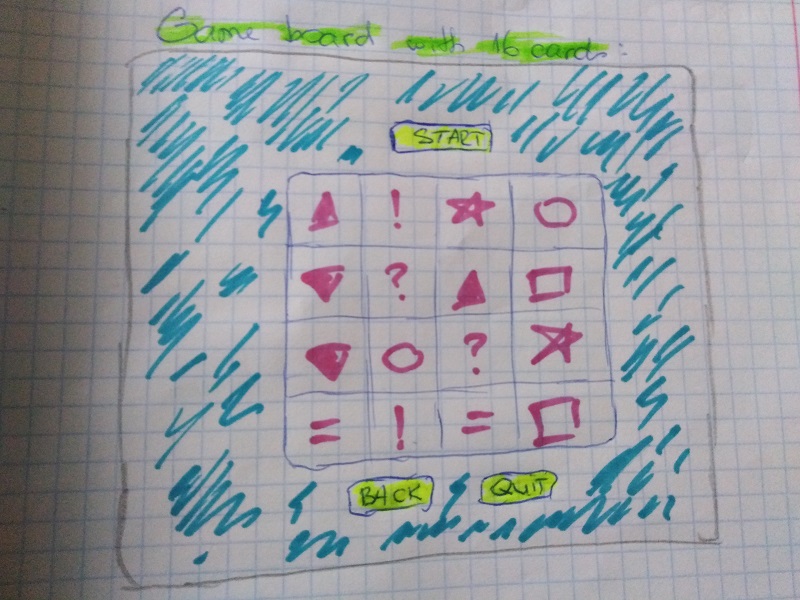 Game board with 16 cards:
START
!
?
?
= ! =
BACK QUIT